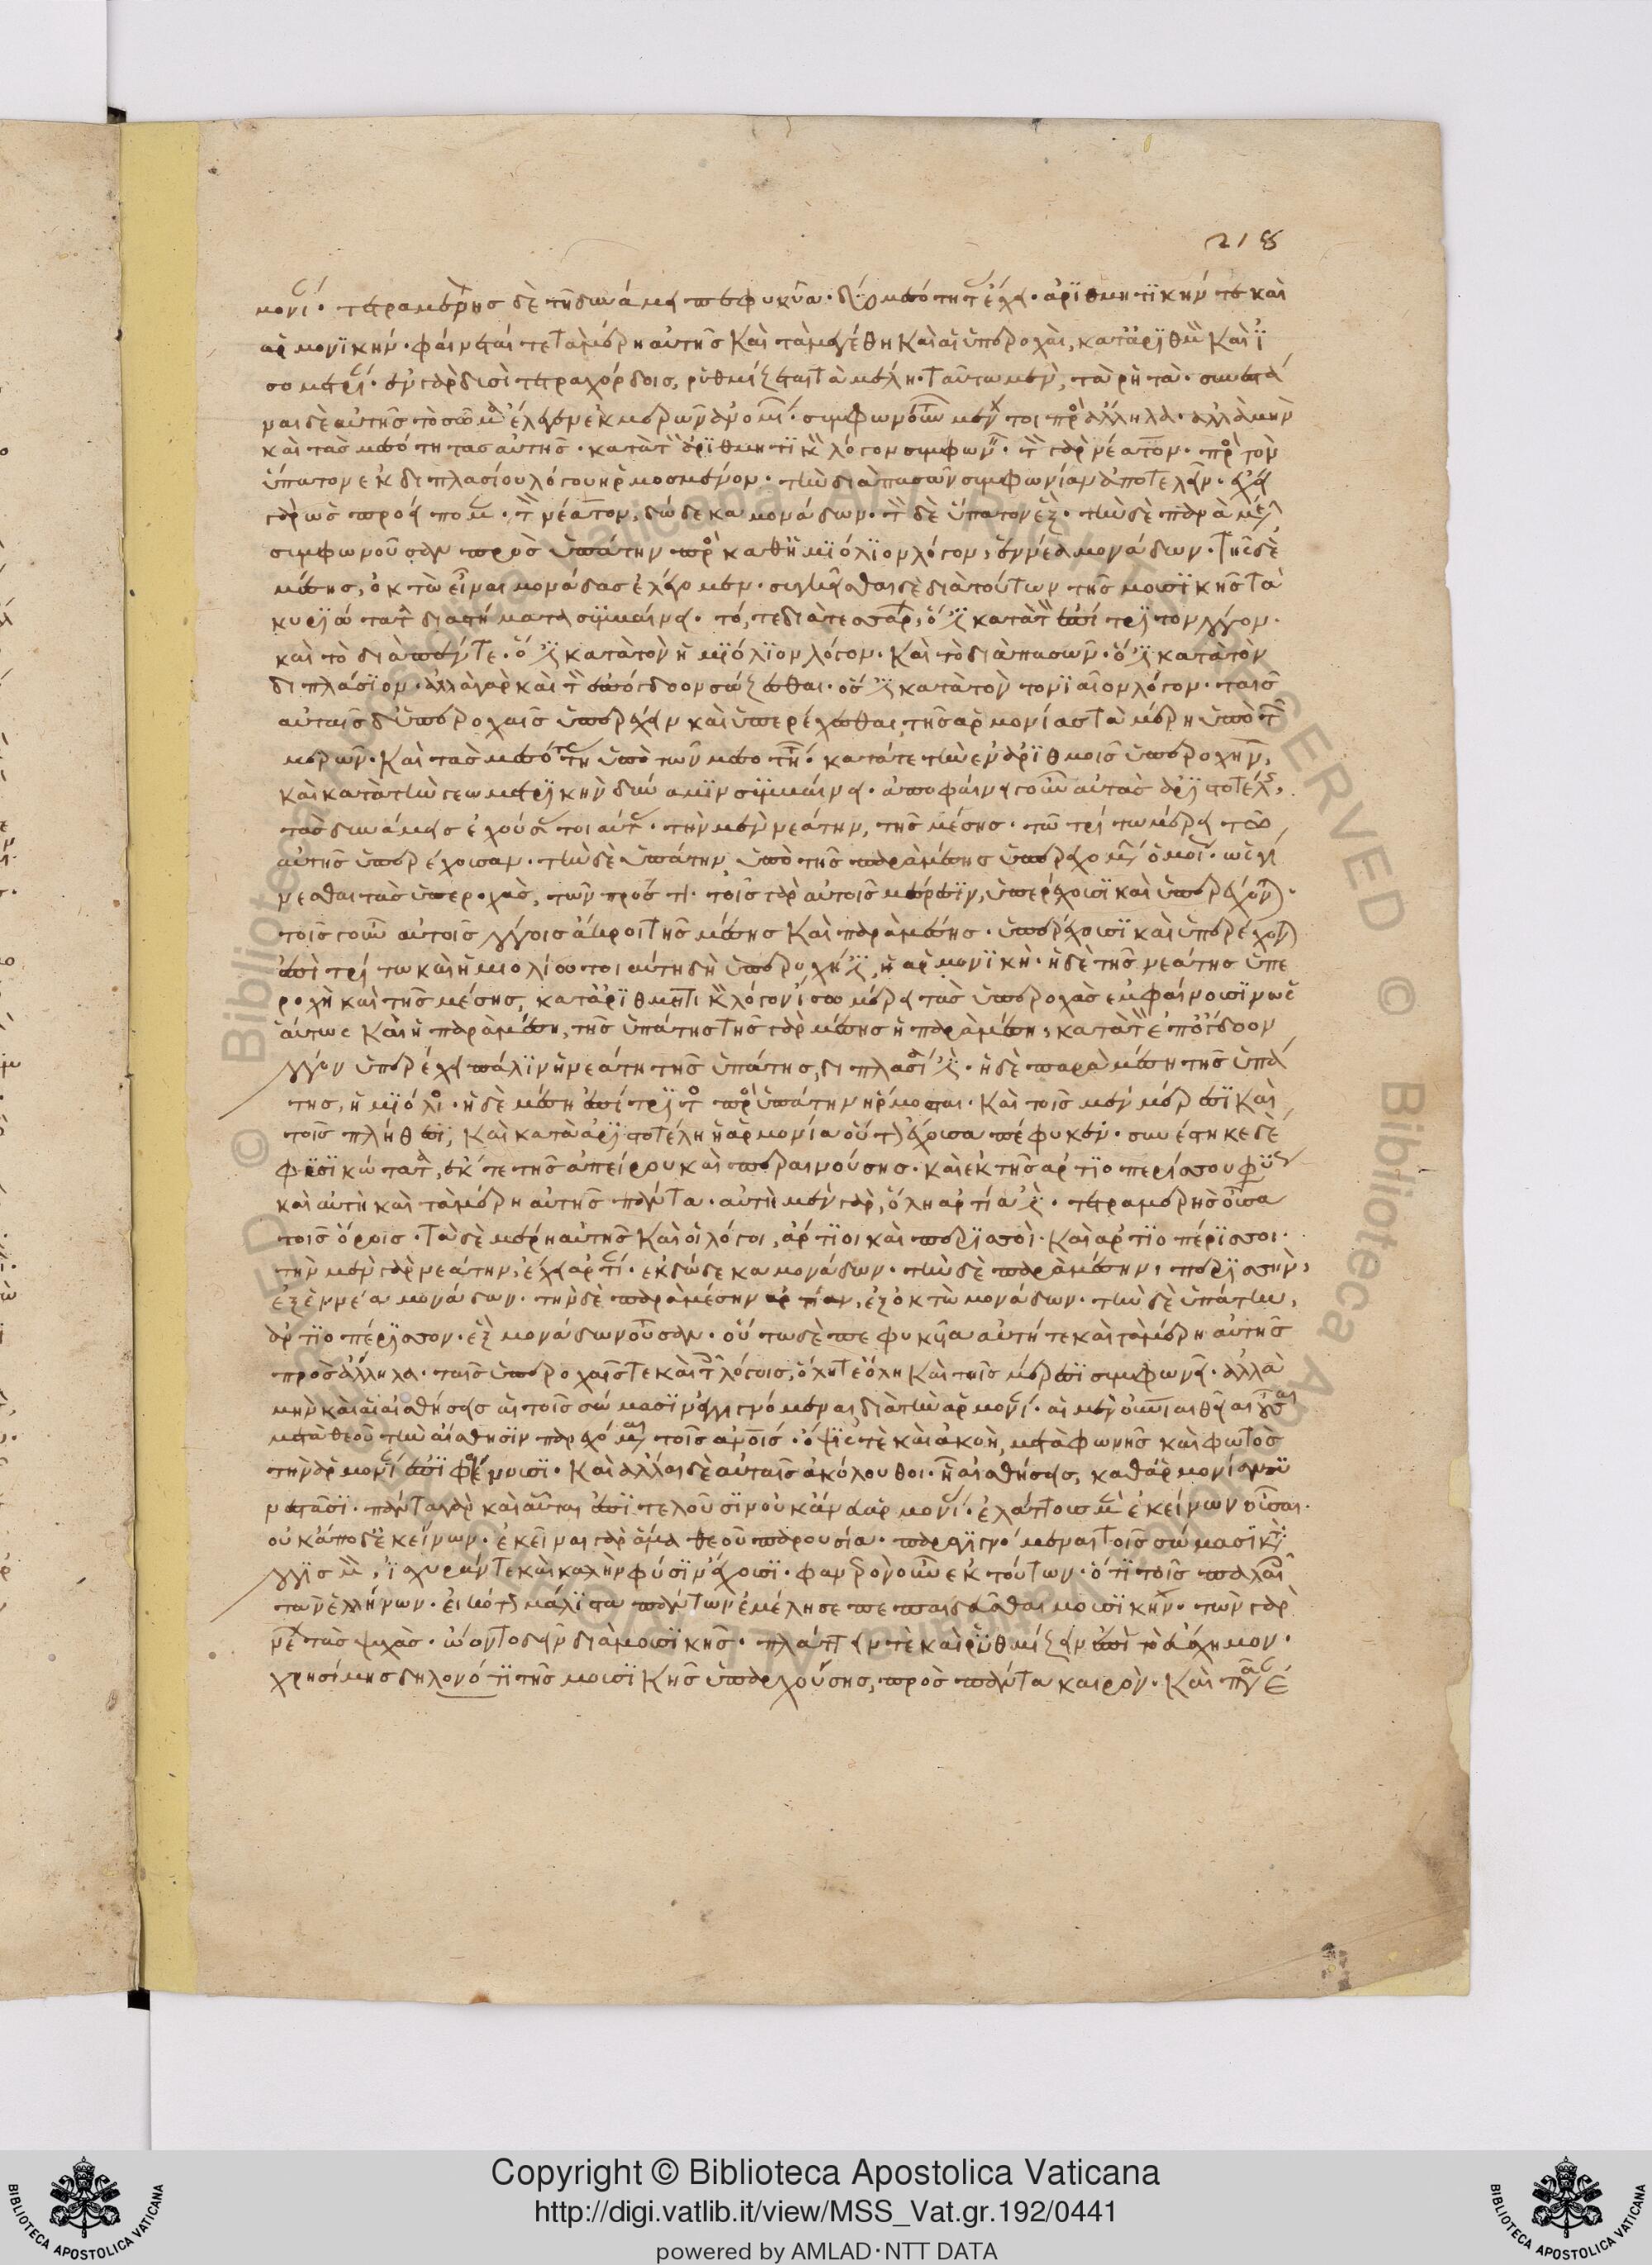 218
μονί. τετραμερης δὲ τῆ δυνάμει πεφυκυῖα· δύο μεσότητ ἔχει· ἀριθμητικήν τε καὶ
ἁρμονικήν· φαίνεταί τε τὰ μέρη αὐτῆς καὶ τὰ μεγέθη καὶ αἱ ὑπεροχαὶ, κατ' ἀριθμὸν καὶ ἰ
σομετρί. ἐν γὰρ δυσὶ τετραχόρδοις, ῥυθμίζεται τὰ μέλη. ταῦτα μὲν, τὰ ῥητά. συνεστά
ναι δὲ αὐτῆς τὸ σῶμα ἔλεγεν ἐκ μερῶν ἀνομί. συμφωνούντων μέντοι πρὸς ἄλληλα. ἀλλὰ μὴν
καὶ τὰς μεσότητας αὐτῆς. κατὰ τὸν ἀριθμητικὸν λόγον συμφων. τὸν γὰρ νέατον. πρὸς τὸν
ὕπατον ἐκ διπλασίου λόγου ἡρμοσμένον. τὴν διὰ πασῶν συμφωνίαν ἀποτελεῖν. ἔχει
γὰρ ὡς προείπομεν. τὸν νέατον, δώδεκα μονάδων. τὸν δὲ ὕπατον ἓξ. τὴν δὲ παραμές
συμφωνοῦσαν πρὸς ὑπάτην πρὸς καθ' ἡμιόλιον λόγον, ἐννέα μονάδων. τῆς δὲ
μέσης, ὀκτὼ εἶναι μονάδας ἐλέγομεν. συγκεῖσθαι δὲ διὰ τούτων τῆς μουσικῆς τὰ
κυριώτατ διαστήματα συμβαίνει. τό, τε διὰ τεσσαρ, ὅ ἐστι κατὰ τὸν ἐπίτριτον λόγον.
καὶ τὸ διὰ πέντε. ὅ ἐστι κατὰ τὸν ἡμιόλιον λόγον. καὶ τὸ διὰ πασῶν. ὅ ἐστι κατὰ τὸν
διπλάσιον. ἀλλὰ γὰρ καὶ τὸν ἐπόγδοον σώζεσθαι. ὅς ἐστι κατὰ τὸν τονιαῖον λόγον. ταῖς
αὐταῖς δ' ὑπεροχαῖς ὑπερέχειν καὶ ὑπερέχεσθαι, τῆς ἁρμονίας τὰ μέρη ὑπὸ τῶν
μερῶν. καὶ τὰς μεσότητ ὑπὸ τῶν μεσοτή. κατά τε τὴν ἐν ἀριθμοῖς ὑπεροχὴν,
καὶ κατὰ τὴν γεωμετρικὴν δύναμιν συμβαίνει. ἀποφαίνει γοῦν αὐτὰς ἀριστοτέλς,
τὰς δυνάμεις ἐχούσ τοιαύτ. τὴν μὲν νεάτην, τῆς μέσης. τῶ τρίτω μέρει τῶ
αὐτῆς ὑπερέχουσαν. τὴν δὲ ὑπάτην, ὑπὸ τῆς παραμέσης ὑπερεχομέ ὁμοί. ὡς γί
νεσθαι τὰς ὑπεροχὰς, τῶν πρός τι. τοῖς γὰρ αὐτοῖς μέρεσιν, ὑπερέχουσι καὶ ὑπερέχον.
τοῖς γοῦν αὐτοῖς λόγοις ἄκροι τῆς μέσης καὶ παραμέσης. ὑπερέχουσι καὶ ὑπερέχον
ἐπὶ τρίτω καὶ ἡμιολίω τοιαύτη δὴ ὑπεροχή ἐστι, ἡ ἁρμονική. ἡ δὲ τῆς νεάτης ὑπε
ροχὴ καὶ τῆς μέσης, κατ' ἀριθμητι λόγον ἴσω μέρει τὰς ὑπεροχὰς ἐμφαίνουσιν ὡς
αύτως καὶ ἡ παραμέση, τῆς ὑπάτης τῆς γὰρ μέσης ἡ παραμέση, κατὰ τὸν ἐπόγδοον
λόγον ὑπερέχει πάλιν ἡ νεάτη τῆς ὑπάτης, διπλασί ἐστι. ἡ δὲ παραμέση τῆς ὑπά
της, ἡμιόλι. ἡ δὲ μέση ἐπίτριτ πρὸς ὑπάτην ἥρμοσται. καὶ τοῖς μὲν μέρεσι καὶ
τοῖς πλήθεσι, καὶ κατὰ ἀριστοτέλη ἡ ἁρμονία οὕτως ἔχουσα πέφυκεν. συνέστηκε δὲ
φυσικώτατ, ἔκ τε τῆς ἀπείρου καὶ περαινούσης. καὶ ἐκ τῆς ἀρτιοπερίσσου φύς
καὶ αὐτὴ καὶ τὰ μέρη αὐτῆς πάντα. αὐτὴ μὲν γὰρ, ὅλη ἀρτία ἐστί. τετραμερὴς οὖσα
τοῖς ὅροις. τὰ δὲ μέρη αὐτῆς καὶ οἱ λόγοι, ἄρτιοι καὶ περισσοὶ. καὶ ἀρτιοπέρισσοι.
τὴν μὲν γὰρ νεάτην, ἔχει ἀρτί. ἐκ δώδεκα μονάδων. τὴν δὲ παραμέσην, περισσὴν,
ἐξ ἐννέα μονάδων. τὴν δὲ παραμέσην ἀρτίαν, ἐξ ὀκτὼ μονάδων. τὴν δὲ ὑπάτην,
ἀρτιοπέρισσον. ἓξ μονάδων οὖσαν. οὕτω δὲ πεφυκυῖα αὐτή τε καὶ τὰ μέρη αὐτῆς
πρὸς ἄλληλα. ταῖς ὑπεροχαῖς τε καὶ τοῖς λόγοις, ὅλη τε ὅλη καὶ τοῖς μέρεσι συμφωνεῖ. ἀλλὰ
μὴν καὶ αἱ αἰσθήσεις αἱ τοῖς σώμασιν ἐγγιγνόμεναι διὰ τὴν ἁρμονί. αἱ μὲν οὐράνιαι θεῖαι οὖσαι
μετὰ θεοῦ τὴν αἴσθησιν παρεχόμεναι τοῖς ἀνοις. ὄψις τὲ καὶ ἀκοὴ, μετὰ φωνῆς καὶ φωτὸς
τὴν ἁρμονί ἐπιφαίνουσι. καὶ ἄλλαι δὲ αὐταῖς ἀκόλουθοι. ἧ αἰσθήσεις, καθ' ἁρμονί συν
νεστᾶσι. πάντα γὰρ καὶ αὗται ἐπιτελοῦσιν οὐκ ἄνευ ἁρμονί. ἐλάττους μὲν ἐκείνων οὖσαι.
οὐκ ἄπο δ' ἐκείνων. ἐκεῖναι γὰρ ἅμα θεοῦ παρουσία. παραγιγνόμεναι τοῖς σώμασι κατὰ
λογισμ, ἰσχυράν τε καὶ καλὴν φύσιν ἔχουσι. φανερὸν οὖν ἐκ τούτων. ὅτι τοῖς παλαι
τῶν ἑλλήνων. εἰκότως μάλιστα πάντων ἐμέλησε πεπαιδεῦσθαι μουσικήν. τῶν γὰρ
νέ τὰς ψυχὰς. ὤοντο δεῖν διὰ μουσικῆς. πλάττειν τὲ καὶ ῥυθμίζειν ἐπὶ τὸ εὔσχημον.
χρησίμης δηλονότι τῆς μουσικῆς ὑπαρχούσης, πρὸς πάντα καιρὸν. καὶ πᾶσ
Copyright © Biblioteca Apostolica Vaticana
http://digi.vatlib.it/view/MSS_Vat.gr.192/0441
powered by AMLAD·NTT DATA